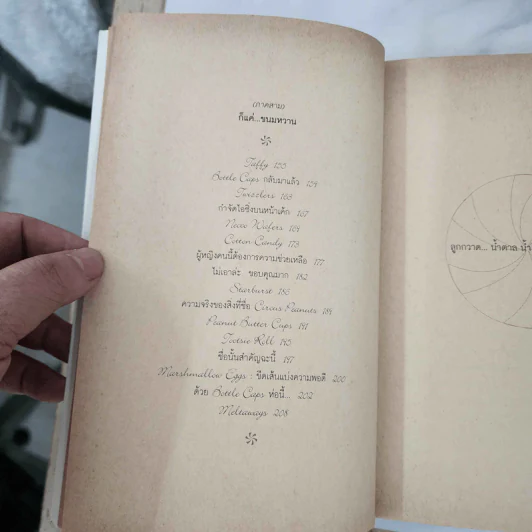 (ภาคสาม)
ก็แค่...ขนมหวาน
Taffy 155
Bottle Caps กลับมาแล้ว 159
Twizzlers 165
กำจัดไอซิ่งบนหน้าเค้ก 167
Necco Wafers 169
Cotton Candy 173
ผู้หญิงคนนี้ต้องการความช่วยเหลือ 177
ไม่เอาล่ะ ขอบคุณมาก 182
Starburst 186
ความจริงของสิ่งที่ชื่อ Circus Peanuts 189
Peanut Butter Cups 191
Tootsie Roll 195
ชื่อนั้นสำคัญฉะนี้ 197
Marshmallow Eggs : ขีดเส้นแบ่งความพอดี 200
ด้วย Bottle Caps ห่อนี้... 202
Meltaways 208
ลูกกวาด... น้ำตาล